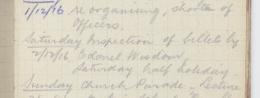 1/12/16 reorganising, shorten of
Officers.
Saturday Inspection of billets by
2/12/16 Colonel Wisdom
Saturday half holiday.
Sunday Church Parade - Lecture